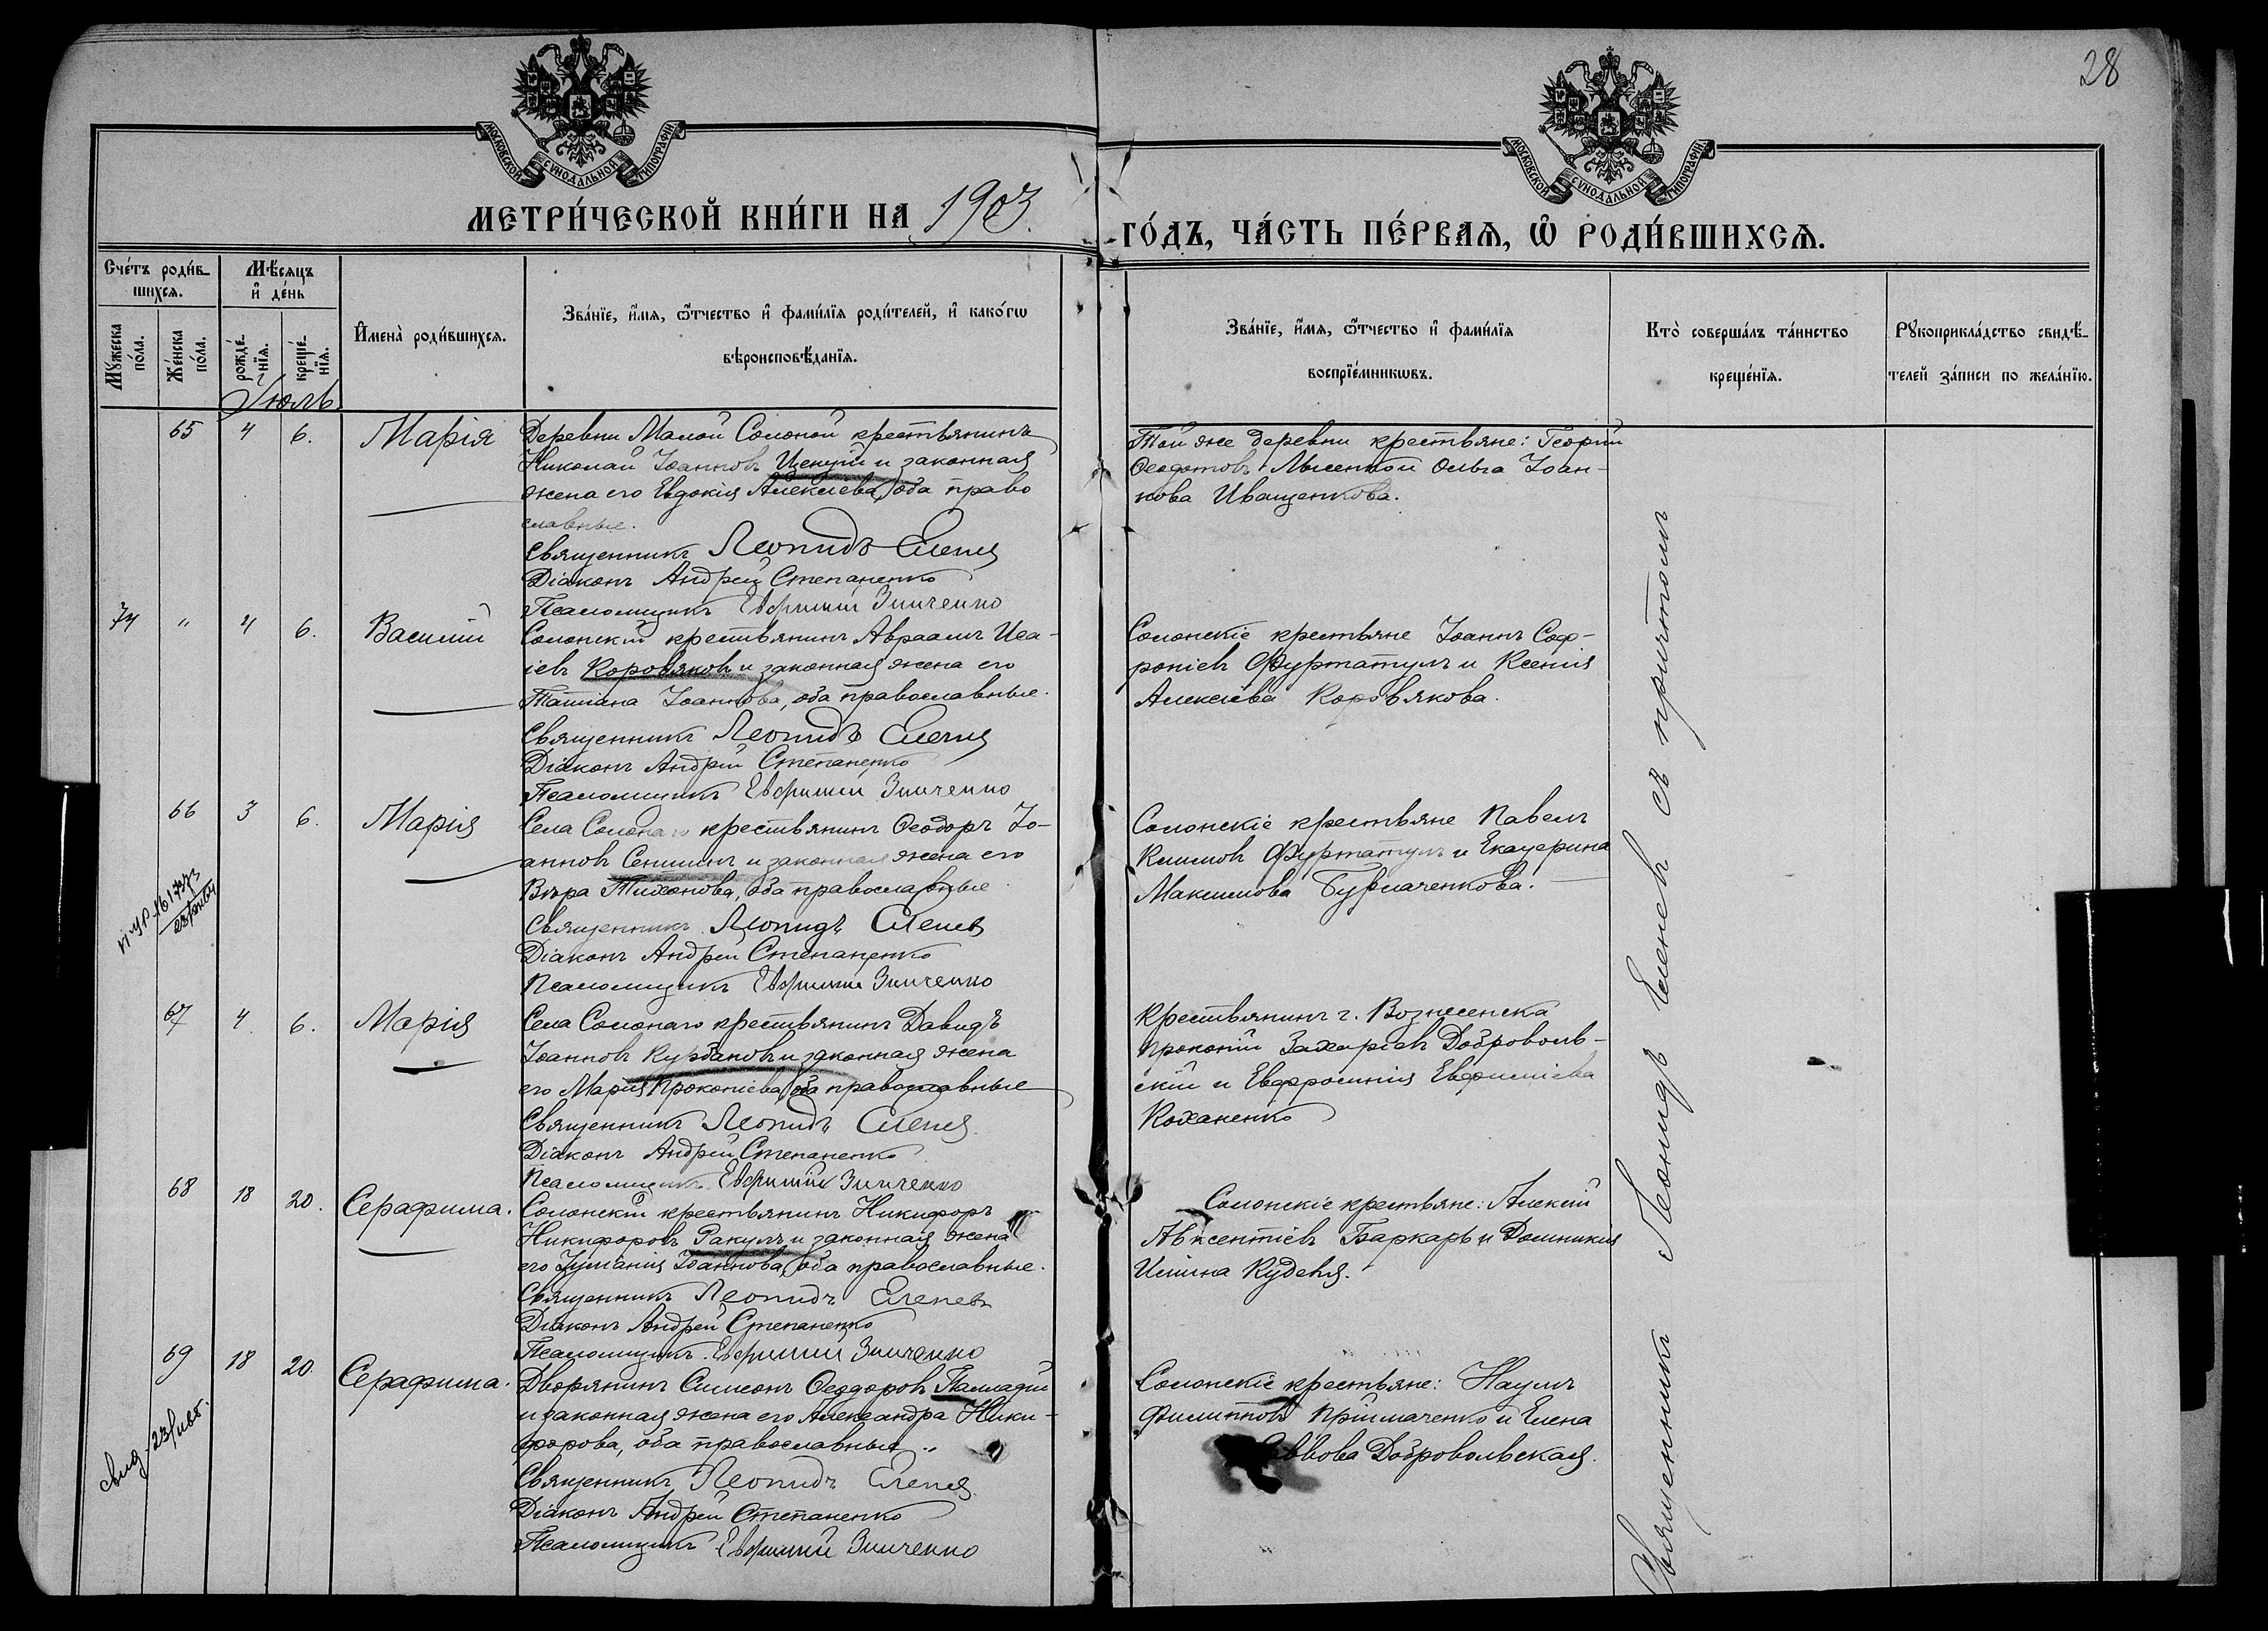 28
МОСКОВСКОЙ СѴНОДАЛЬНОЙ ТИПОГРАФІИ.
МОСКОВСКОЙ СѴНОДАЛЬНОЙ ТИПОГРАФІИ.
МЕТРИ́ЧЕСКОЙ КНИ́ГИ НА 1903.
ГО́ДЪ, ЧА́СТЬ ПЕ́РВАѦ, Ѽ РОДИ́ВШИХСѦ.
Сче́тъ роди́в-
шихся.
Мѣ́сяцъ
и҆ де́нь
Мꙋ́жеска
по́ла.
Же́нска
по́ла.
рожде́-
нїя.
креще́-
нїя.
И҆мена̀ роди́вшихся.
Зва́нїе, и҆́мя, ѻ҆́тчество и҆ фами́лїя роди́телей, и҆ како́гѡ
вѣроисповѣ́данїя.
Зва́нїе, и҆́мя, ѻ҆́тчество и҆ фами́лїя
воспрїе́мникѡвъ.
Кто̀ соверша́лъ та́инство
креще́нїя.
Рꙋкоприкла́дство свидѣ́-
телей за́писи по жела́нїю.
Іюль
65 4 6. Марія
Деревни Малой Солоной крестьянинъ
Николай Іоанновъ и законная
жена его Евдокія Алексіева, оба право
славные.
Священникъ Леонидъ Еленев
Діаконъ Андрей Степаненко
Псаломщикъ Евфимий Зинченко
Той же деревни крестьяне: Георгий
Ольга Іоан-
нова Иващенкова.
74 " 4 6. Василий
Солонский крестьянинъ Авраамъ Иса-
іевъ Коровяковъ и законная жена его
Татіана Іоаннова, оба православные.
Священникъ Леонидъ Еленев
Діаконъ Андрей Степаненко
Псаломщикъ Евфимий Зинченко
Солонскіе крестьяне Іоаннъ Соф-
роніевъ Фуртатулъ и Ксенія
Алексіева Коровякова.
66 3 6. Марія
Села Солонаго крестьянинъ Ѳеодоръ Іо-
анновъ Сенишинъ и законная жена его
Вѣра Тихонова, оба православные.
Священникъ Леонидъ Еленев
Діаконъ Андрей Степаненко
Псаломщикъ Евфимий Зинченко
Солонскіе крестьяне Павелъ
Климовъ Фуртатулъ и Екатерина
Максимова Бурлаченкова.
67 4 6. Марія
Села Солонаго крестьянинъ Давидъ
Іоанновъ Курбаковъ и законная жена
его Марія Прокопіева, оба православные
Священникъ Леонидъ Еленев
Діаконъ Андрей Степаненко
Псаломщикъ Евфимий Зинченко
крестьянинъ г. Вознесенска
Прокопий Захаріевъ Доброволь-
ский и Евфросинія Евфиміева
Коханенко
68 18 20. Серафима.
Солонский крестьянинъ Никифоръ
Никифоровъ Ракулъ и законная жена
его Іуліанія Іоаннова, оба православные.
Священникъ Леонидъ Еленевъ
Діаконъ Андрей Степаненко
Псаломщикъ Евфимий Зинченко
Солонскіе крестьяне: Алексій
Авксентіевъ Баркарь и Домникія
Илліина Кудевя.
69 18 20. Серафима.
Дворянинъ Симеонъ Ѳеодоровъ Палладий
и законная жена его Александра Ники-
форова, оба православные.
Священникъ Леонидъ Еленев
Діаконъ Андрей Степаненко
Псаломщикъ Евфимий Зинченко
Солонскіе крестьяне: Наумъ
Филипповъ Пріймаченко и Елена
Саввова Добровольская.
Священникъ Леонидъ Еленевъ съ причтомъ